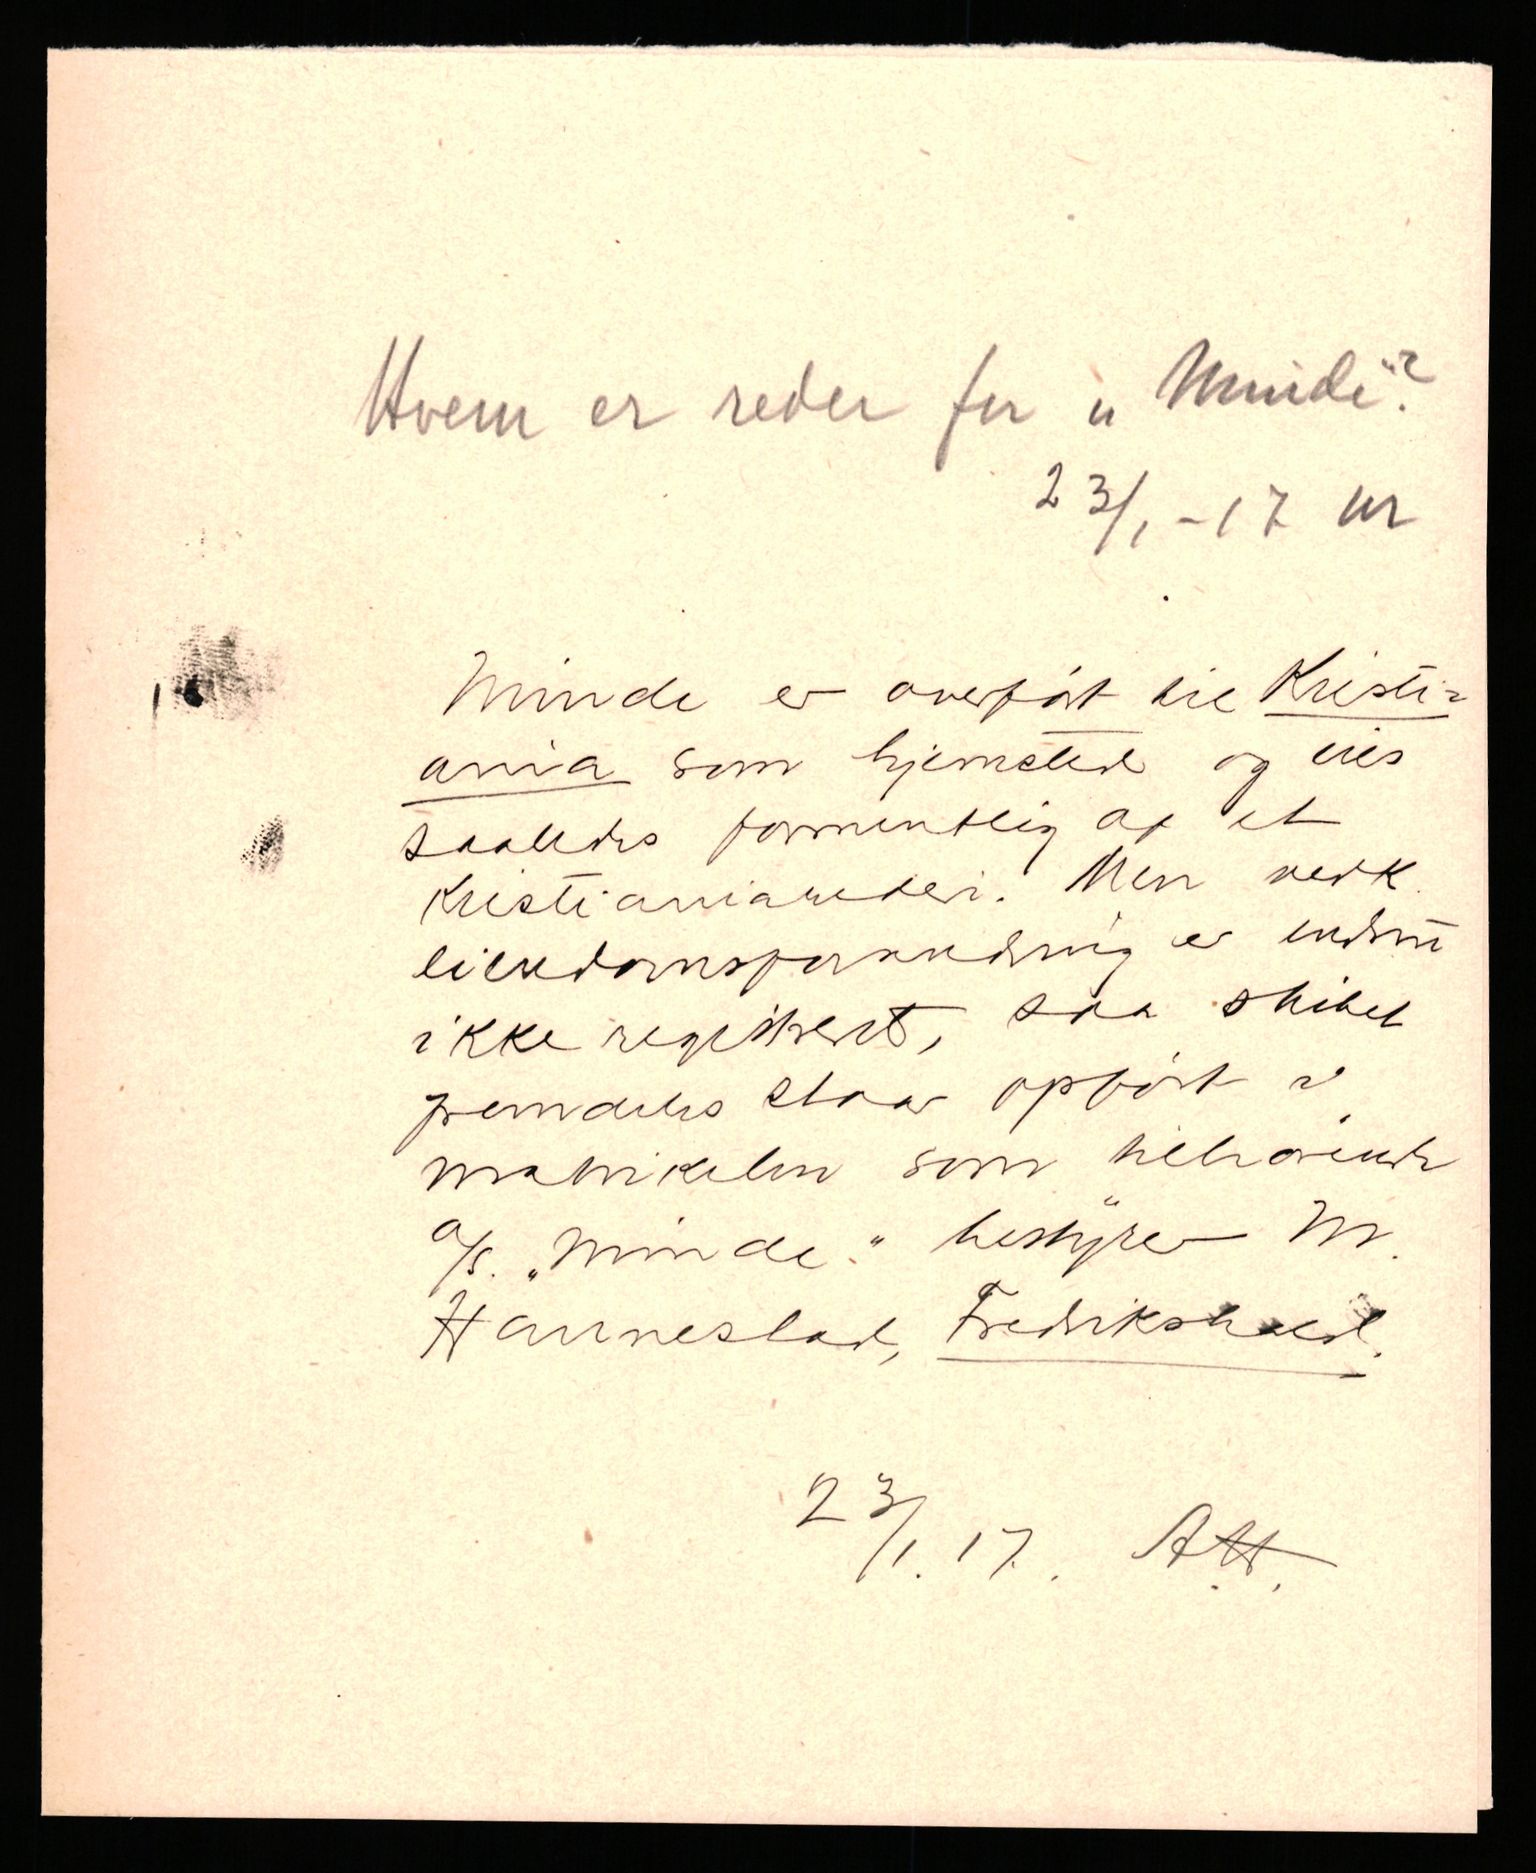 Hvem er reder for „Minde“?
23/1-17
Minde er overført til Kristi-
ania som hjemsted og eies
saaledes formentlig af et
Kristianiarederi. Men vedk.
eiendomsforandring er endnu
ikke registrert, saa skibet
fremdeles staar opført i
matrikelen som tilhørende
a/s. „Minde“ bestyrer M.
Hannestad, Fredrikshald.
23/1.17. A.H.